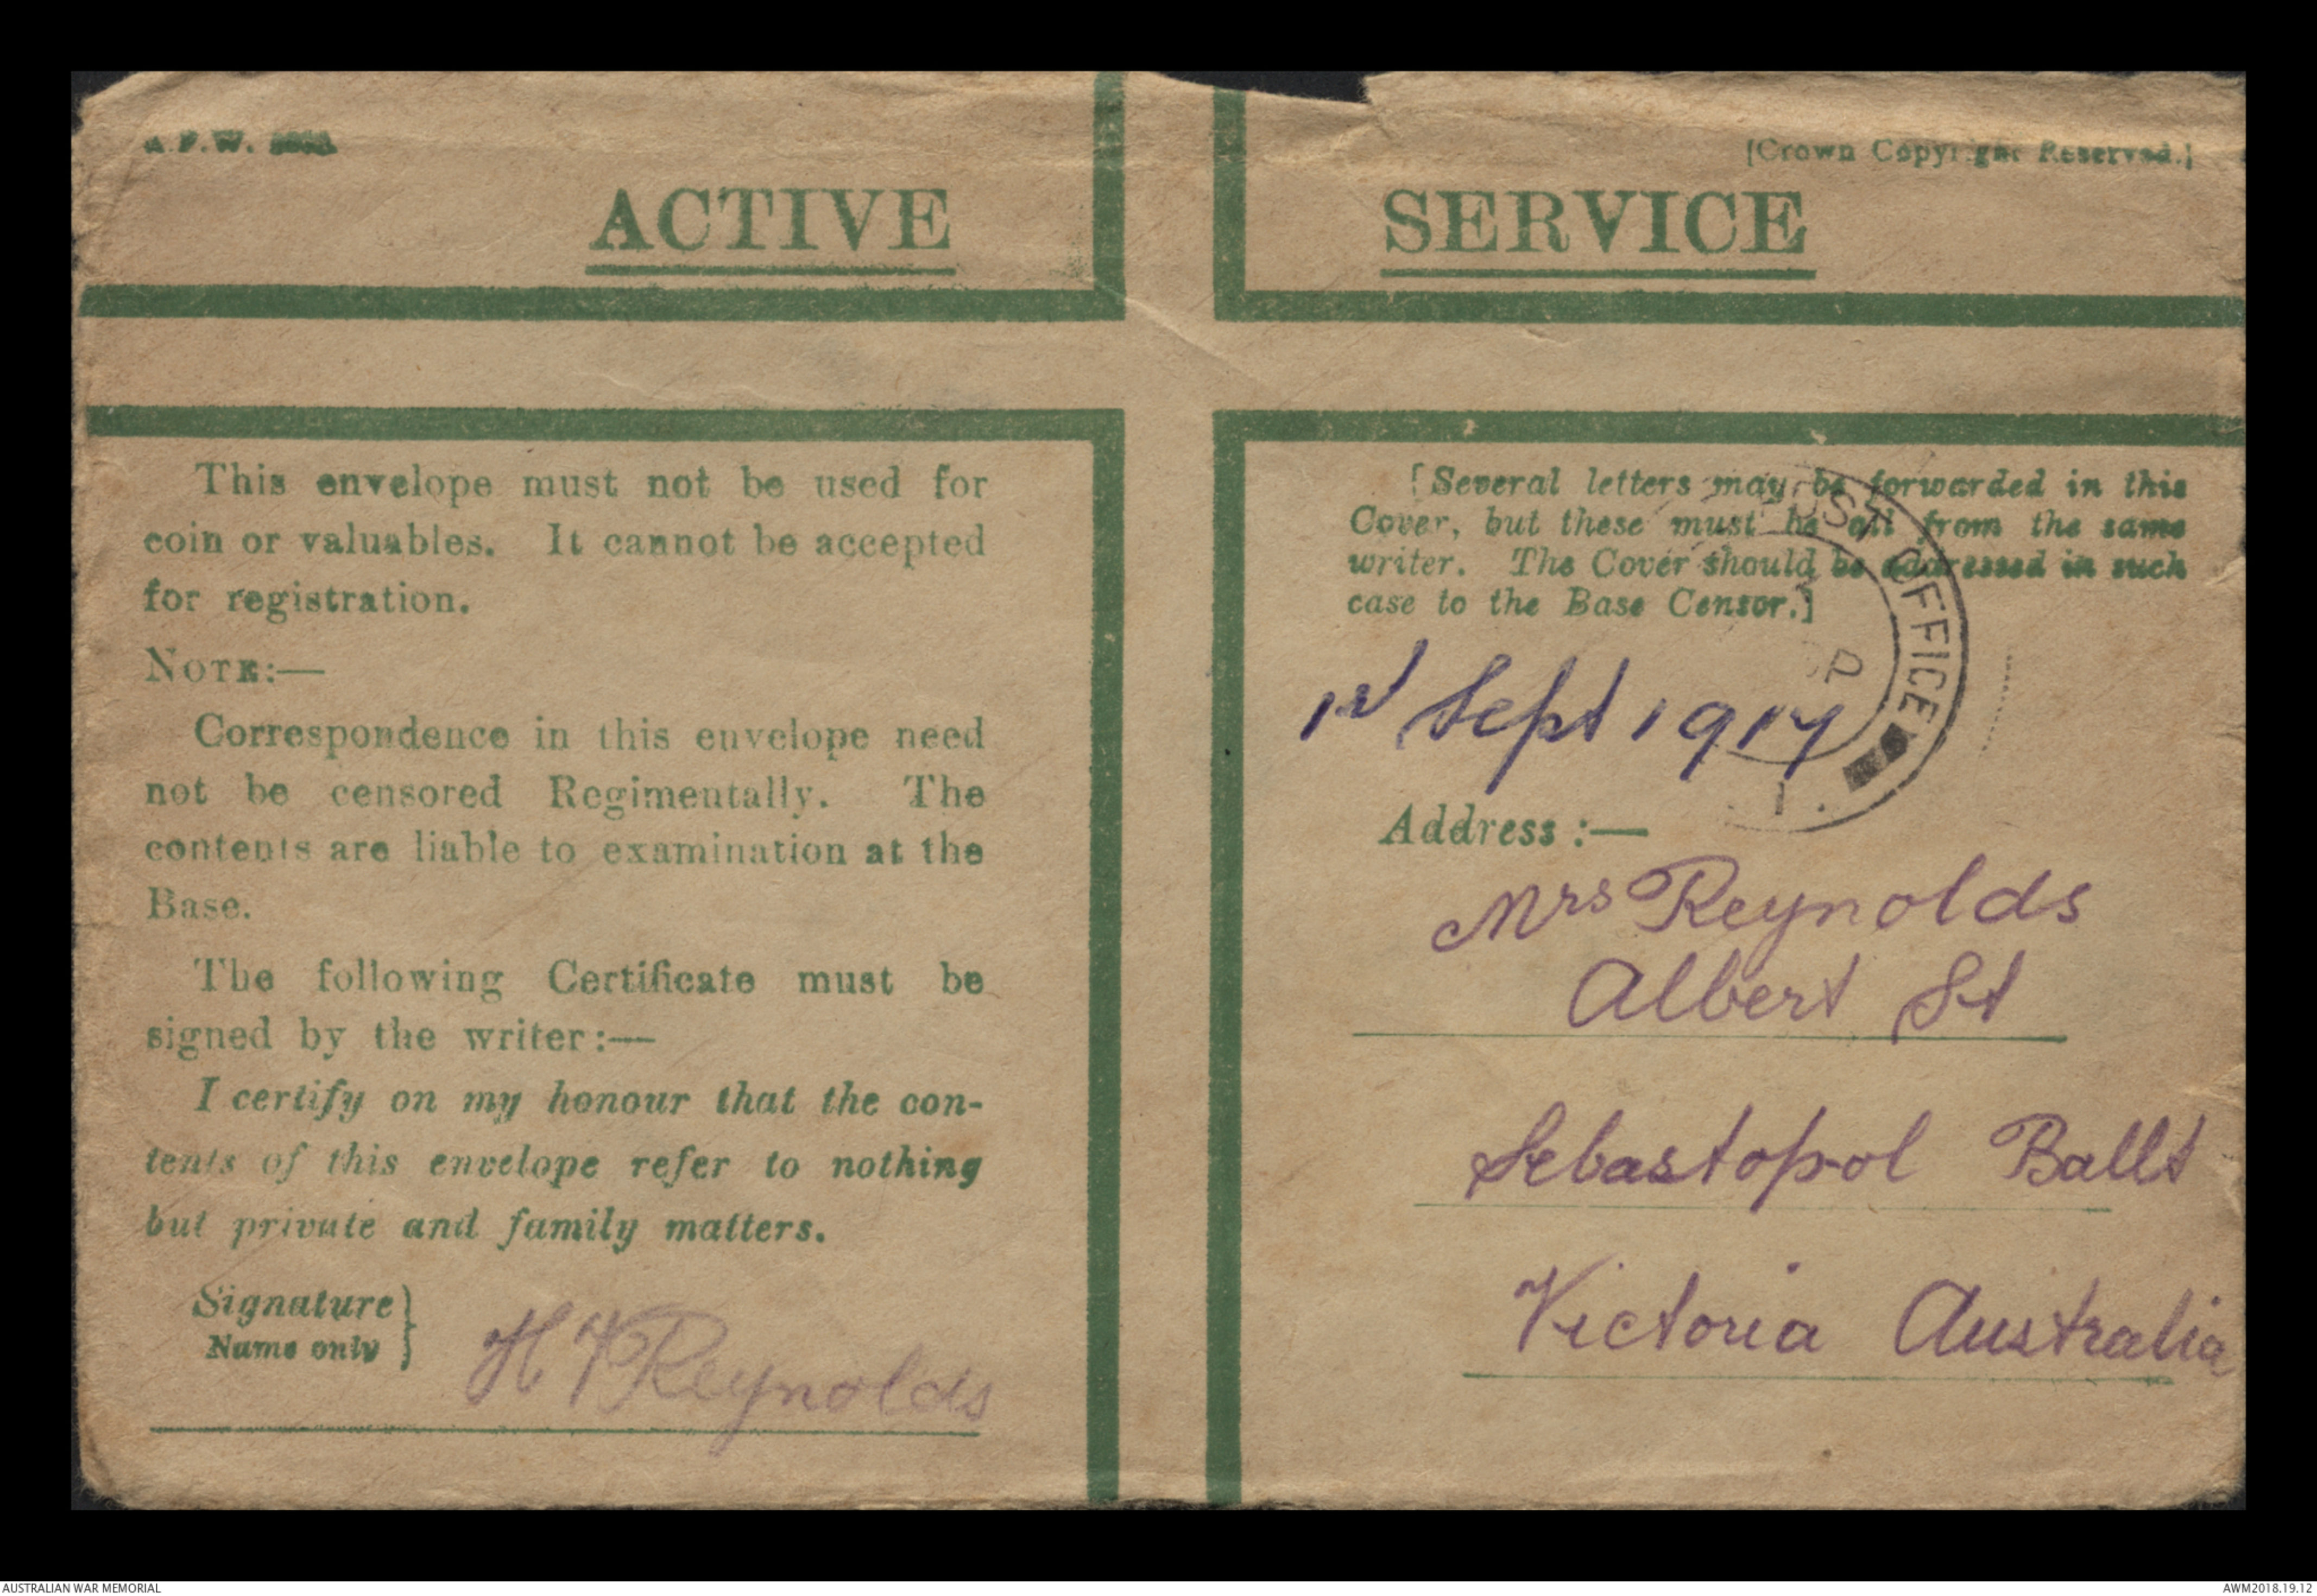 A.F.W.
[Crown Copyright Reserved.]
ACTIVE SERVICE
This envelope must not be used for
coin or valuables. It cannot be accepted
for registration.
NOTE:—
Correspondence in this envelope need
not be censored Regimentally. The
contents are liable to examination at the
Base.
The following Certificate must be
signed by the writer:—
I certify on my honour that the con-
tents of this envelope refer to nothing
but private and family matters.
Signature
Name only
H V Reynolds
[Several letters may be forwarded in this
Cover, but these must be all from the same
writer. The Cover should be addressed in such
case to the Base Censor.]
POST OFFICE
1st Sept 1917
Address:—
Mrs Reynolds
Albert St
Sebastopol Ballt
Victoria Australia
AUSTRALIAN WAR MEMORIAL
AWM2018.19.12